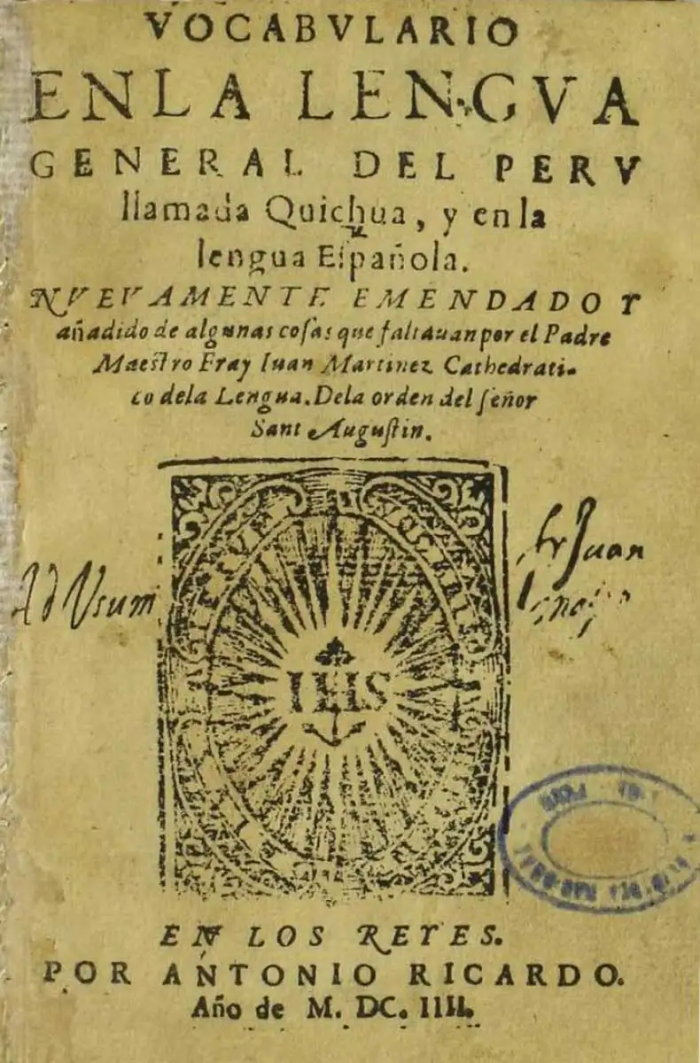 VOCABVLARIO
ENLA LENGVA
GENERAL DEL PERV
llamada Quichua, y enla
lengua Eſpañola.
NVEVAMENTE EMENDADO Y
añadido de algunas coſas que faltauan por el Padre
Maeſtro Fray Iuan Martinez Cathedrati-
co dela Lengua. Dela orden del ſeñor
Sant Auguſtin.
Ad Usum
fr Juan
IHS
EN LOS REYES.
POR ANTONIO RICARDO.
Año de M. DC. IIII.